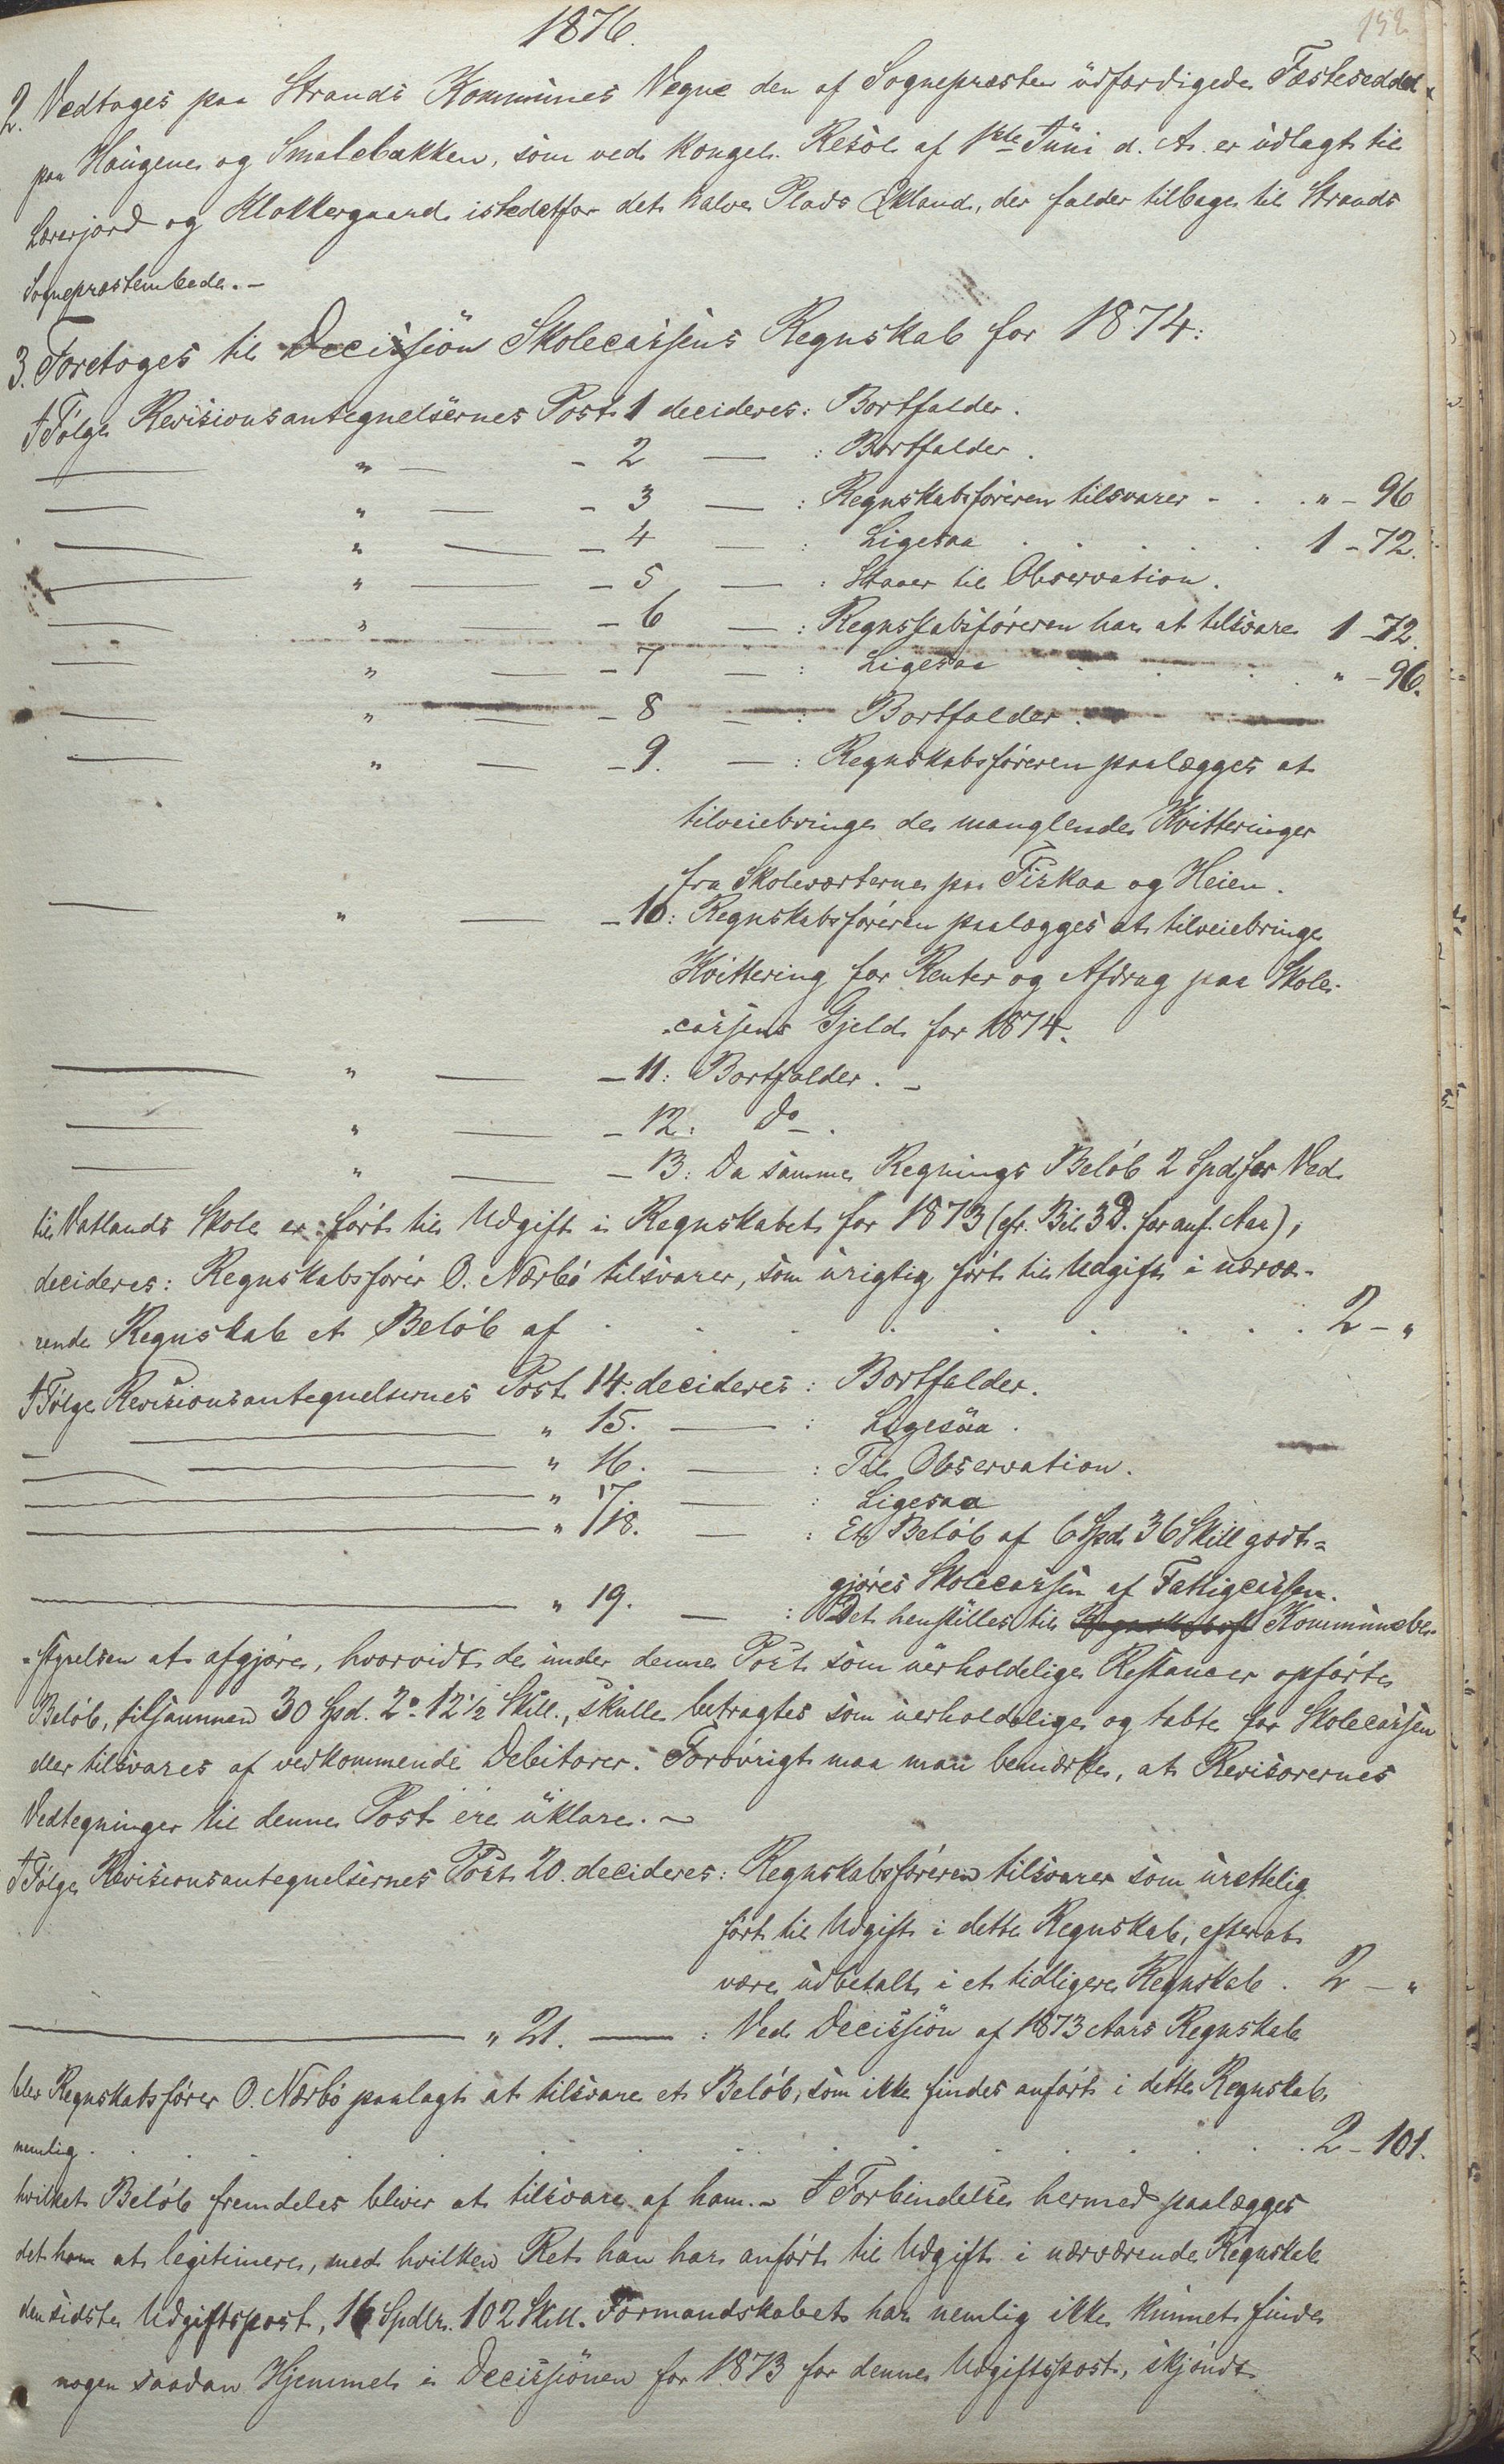 1876.
152
2. Vedtages paa Strands Kommunes Vegne den af Sognepræsten udfærdigede Fæsteseddel
paa Haugene og Smalebakken, som ved Kongel. Resol. af 1ste Juni d. A. er udlagt til
Lærerjord og Klokkergaard istedetfor det halve Plads Ekland, der falder tilbage til Strands
Sognepræstembede. –
3. Foretoges til Decisjon Skolecassens Regnskab for 1874:
I Følge Revisionsantegnelsernes Post 1 decideres: Bortfalder.
— " — - 2 — : Bortfalder.
— " — - 3 — : Regnskabsføreren tilsvarer - . . " - 96
— " — - 4 — : Ligesaa . . . . . 1 - 72.
— " — - 5 — : Staaer til Observation.
— " — - 6 — : Regnskabsføreren har at tilsvare 1 - 72.
— " — - 7 — : Ligesaa . . . " - 96.
— " — - 8 — : Bortfalder.
— " — - 9. — : Regnskabsføreren paalægges at
tilveiebringe de manglende Kvitteringer
fra Skoleværterne paa Fiskaa og Heien.
— " — - 10: Regnskabsføreren paalægges at tilveiebringe
Kvittering for Renter og Afdrag paa Skole-
cassens Gjeld for 1874.
— " — - 11: Bortfalder. –
— " — - 12: Do .
— " — - 13: Da samme Regnings Beløb 2 Spd. for Ved
til Vatlands Skole er ført til Udgift i Regnskabet for 1873 (cfr. Bil 3 D. for anf. Aar),
decideres: Regnskabsfører O. Nærbø tilsvarer, som urigtig ført til Udgift i nærvæ-
rende Regnskab et Beløb af . . . . . . . . 2 - "
I Følge Revisionsantegnelsernes Post 14. decideres: Bortfalder.
— " 15. — : Ligesaa.
— " 16. — : Til Observation.
— " 17. — : Ligesaa
— " 18. — : Et Beløb af 6 Spd. 36 Skill godt-
gjøres Skolecassen af Fattigcassen.
— " 19. — : Det henstilles til Kommunebe-
-styrelsen at afgjøre, hvorvidt de under denne Post som uerholdelige Restancer opførte
Beløb, tilsammen 30 Spd. 2. 12 1/2 Skill., skulle betragtes som uerholdelige og tabte for Skolecassen
eller tilsvares af vedkommende Debitorer. Forøvrigt maa man bemærke, at Revisorernes
Vedtegninger til denne Post ere uklare. –
I Følge Revisionsantegnelsernes Post 20. decideres: Regnskabsføreren tilsvarer som urettelig
ført til Udgift i dette Regnskab, efter at
være udbetalt i et tidligere Regnskab . 2 - "
— " 21. — : Ved Decissjon af 1873 Aars Regnskab
blev Regnskabsfører O. Nærbø paalagt at tilsvare et Beløb, som ikke findes anført i dette Regnskab,
nemlig . . . . . . . . . . . . 2 - 101.
hvilket Beløb fremdeles bliver at tilsvare af ham. – I Forbindelse hermed paalægges
det ham at legitimere, med hvilken Ret han har anført til Udgift i nærværende Regnskab
den sidste Udgiftspost, 16 Spdlr. 102 Skill. Formandskabet har nemlig ikke kunnet finde
nogen saadan Hjemmel i Decissjonen for 1873 for denne Udgiftspost, skjøndt